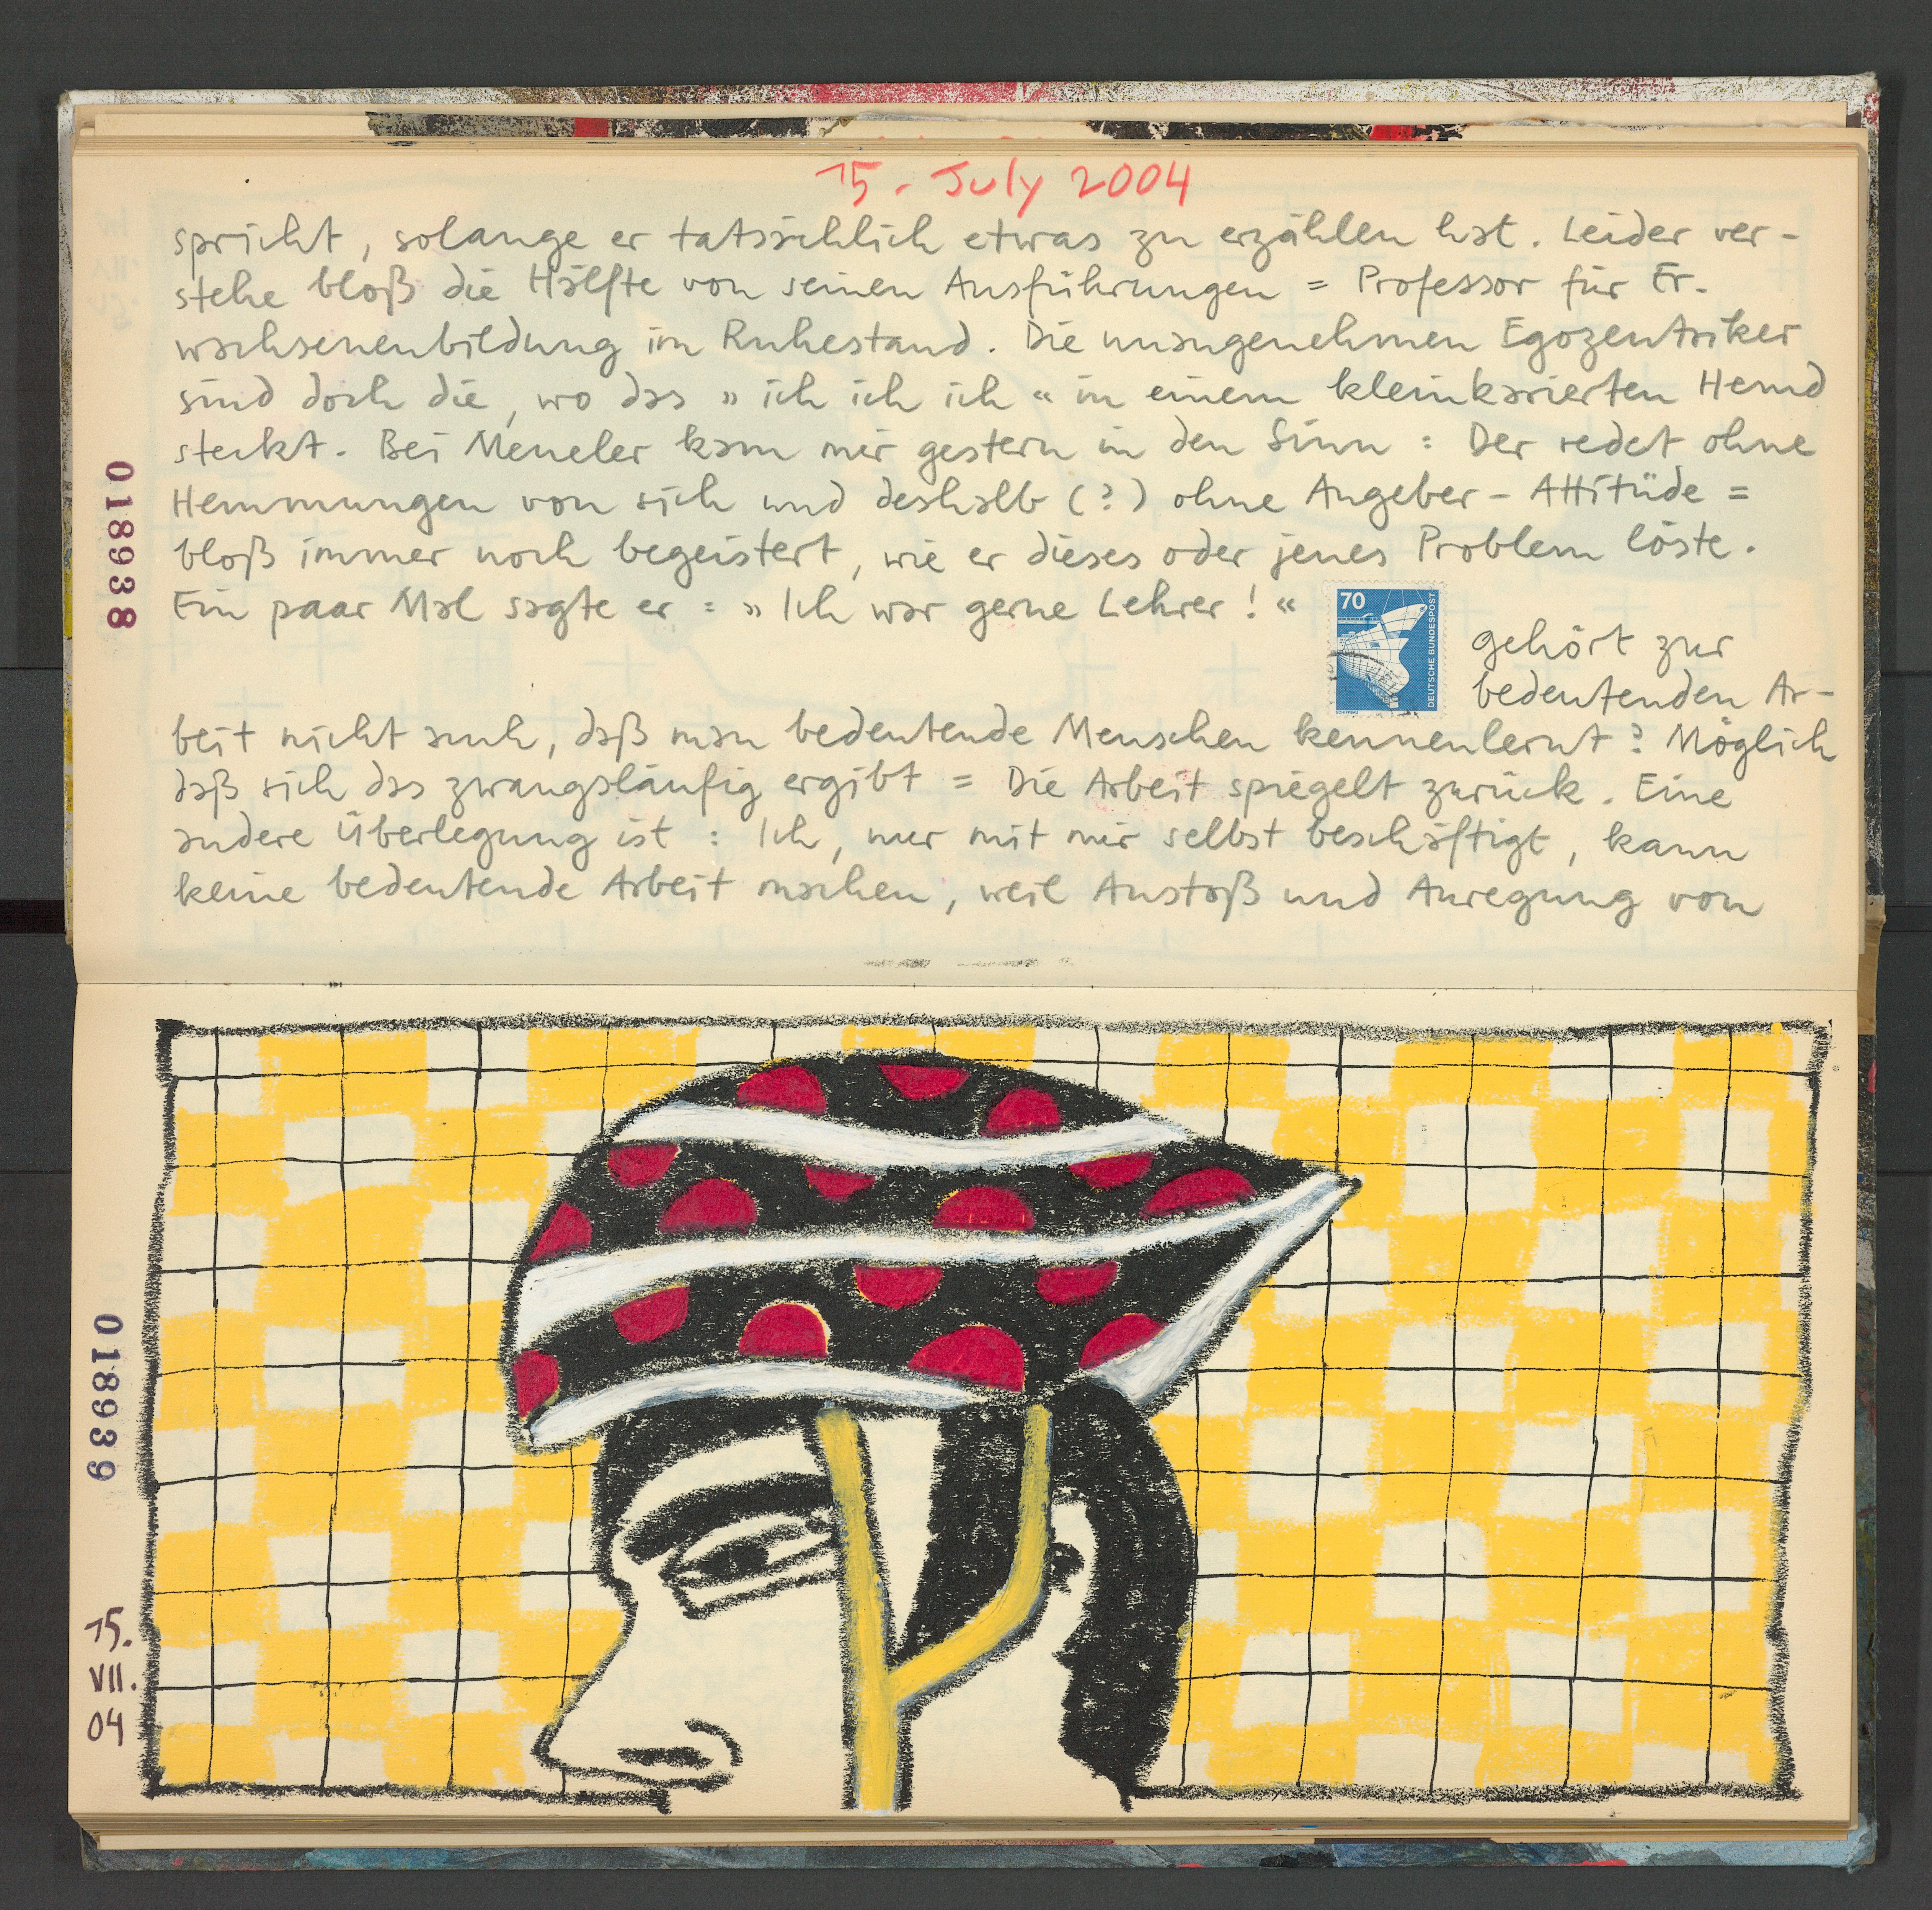 15. July 2004
spricht, solange er tatsächlich etwas zu erzählen hat. Leider ver-
stehe bloß die Hälfte von seinen Ausführungen = Professor für Er-
wachsenenbildung im Ruhestand. Die unangenehmen Egozentriker
sind doch die, wo das » ich ich ich « in einem kleinkarierten Hemd
steckt. Bei Meueler kam mir gestern in den Sinn: Der redet ohne
Hemmungen von sich und deshalb (?) ohne Angeber-Attitüde =
bloß immer noch begeistert, wie er dieses oder jenes Problem löste.
Ein paar Mal sagte er: » Ich war gerne Lehrer! «
70
DEUTSCHE BUNDESPOST
gehört zur
bedeutenden Ar-
beit nicht auch, daß man bedeutende Menschen kennenlernt? Möglich
daß sich das zwangsläufig ergibt = Die Arbeit spiegelt zurück. Eine
andere Überlegung ist: Ich, nur mit mir selbst beschäftigt, kann
keine bedeutende Arbeit machen, weil Anstoß und Anregung von
018938
018939
15.
VII.
04